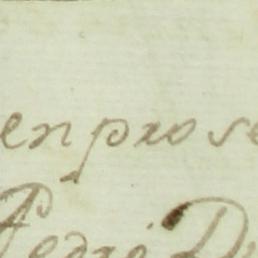 en prose
Pedro D